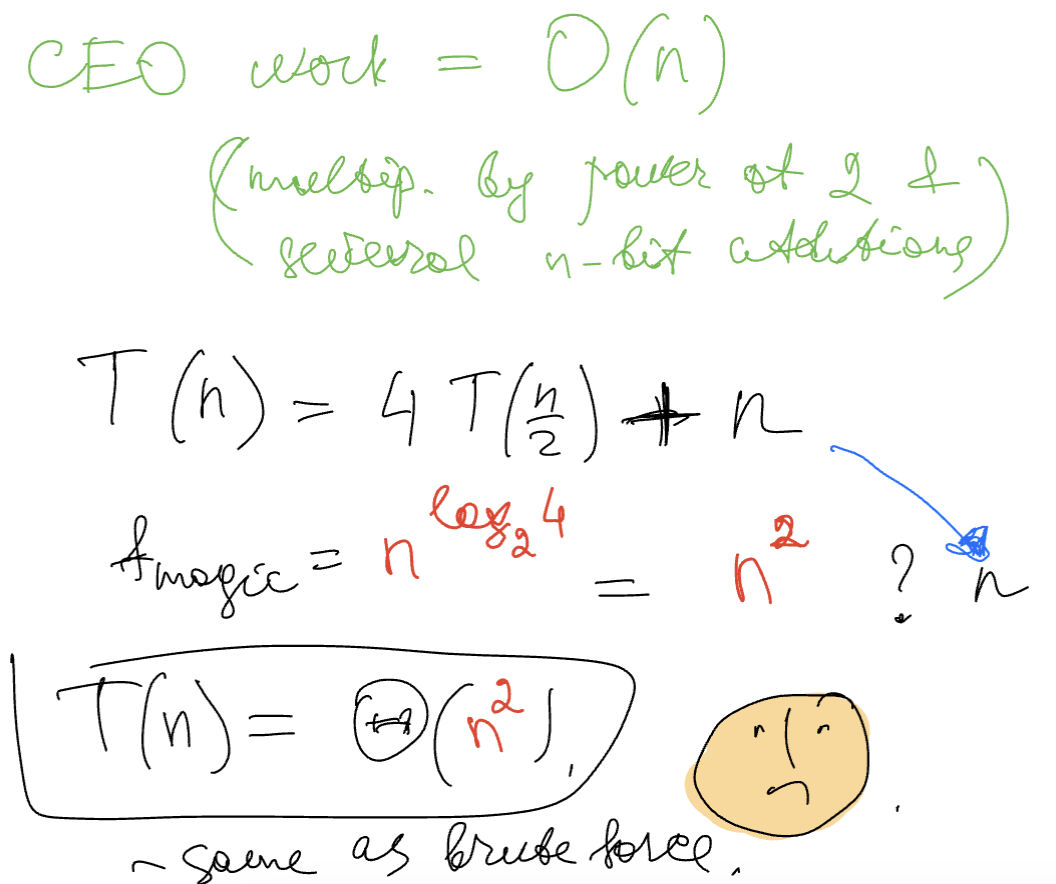 CEO work = O(n)
(multip. by power of 2 &
several n-bit additions)
T(n) = 4 T(n/2) + n
f_magic = n^{log_2 4} = n^2 ? n
T(n) = Θ(n^2),
~ same as brute force.